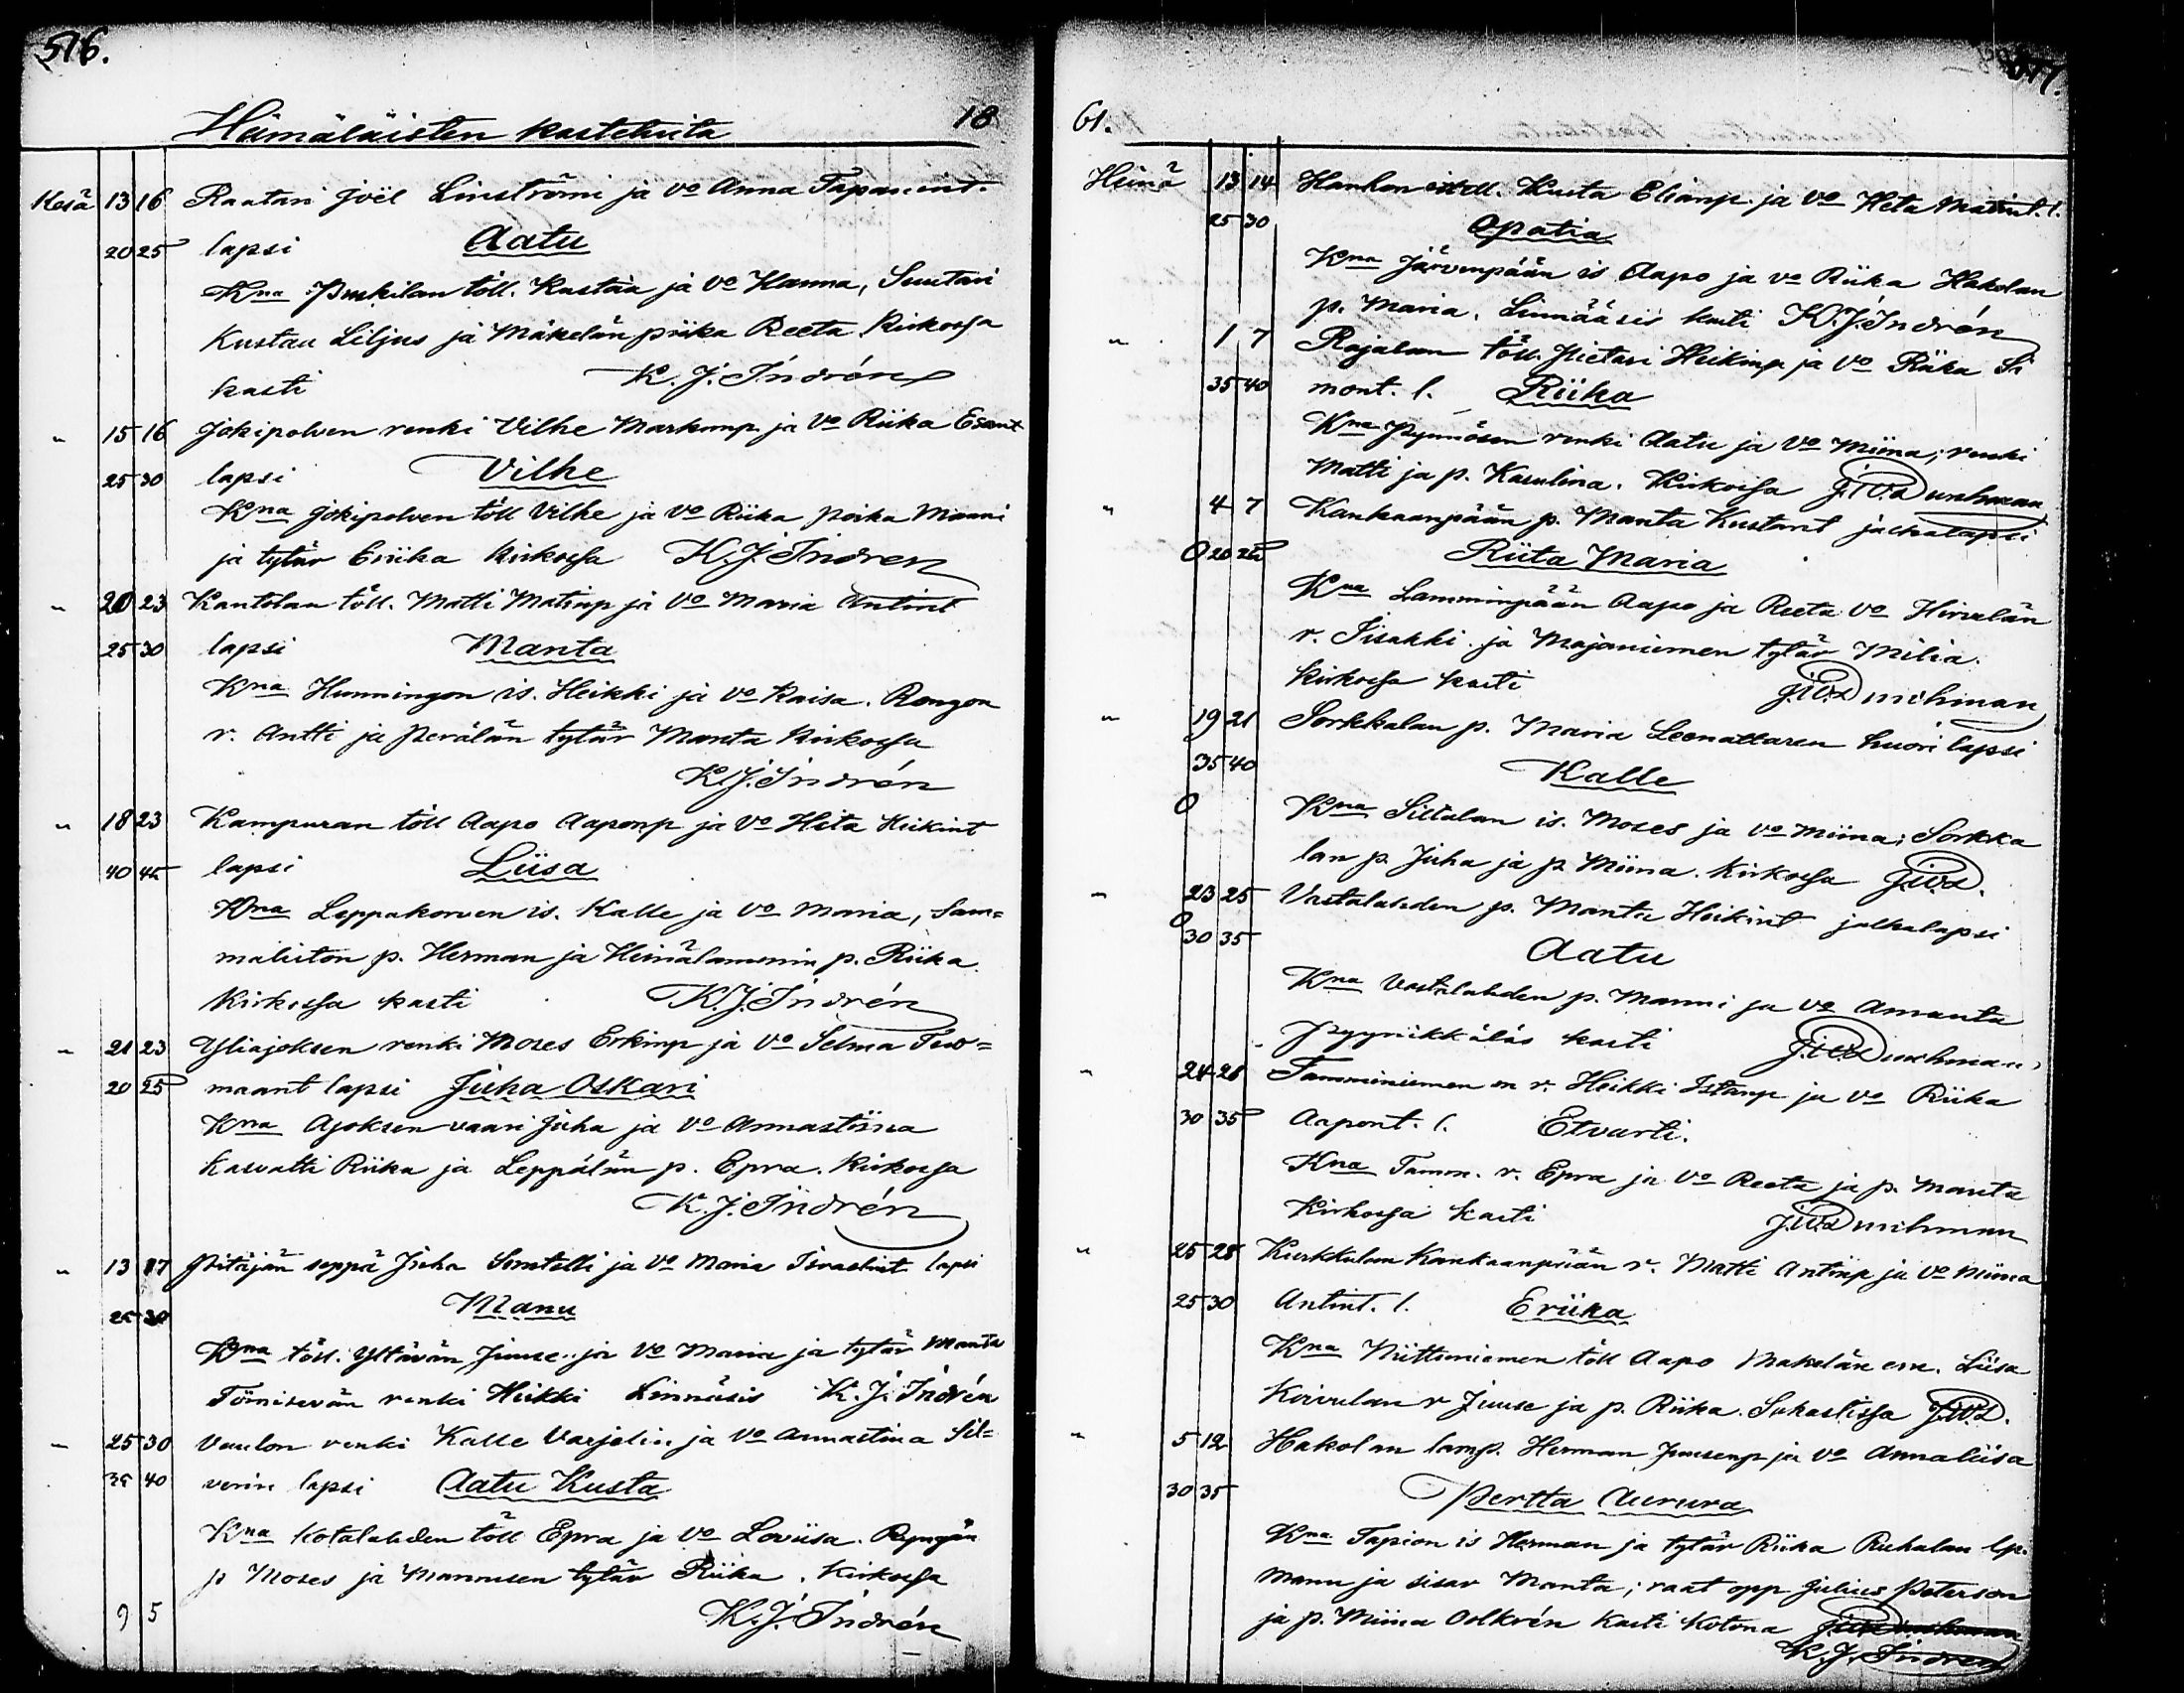 576.
Heimäläisten kastetuita 18
Kesä 13 16 Raatari Joël Linströmi ja vo Anna Tapanint.
20 25 lapsi Aatu
Kna Puskilan töll. Kustaa ja vo Hanna, Suutari
Kustaa Liljus ja Mäkelän piika Reeta. Kirkossa
kasti K. J. Indrén
" 15 16 Jokipolven renki Vilhe Markunp ja Vo Riika Esant
25 30 lapsi Vilhe
Kna Jokipolven töll Vilhe ja Vo Riika poika Manni
ja tytär Eriika Kirkossa K. J. Indren
" 20 23 Kantolan töll. Matti Matinp ja Vo Maria Antint
25 30 lapsi Manta
Kna Hunningon is. Heikki ja vo Kaisa. Rongon
r. Antti ja Perälän tytär Manta Kirkossa
K. J. Indrén
" 18 23 Kampuran töll Aapo Aaponp ja Vo Heta Heikint
40 45 lapsi Liisa
Kna Leppakorven is. Kalle ja Vo Maria, Sam=
maliston p. Herman ja Heinälammin p. Riika.
Kirkossa kasti K. J. Indrén
" 21 23 Yliajoksen renki Moses Erkinp ja Vo Selma Tew=
20 25 maant lapsi Juha Oskari
Kna Ajoksen vaari Juha ja Vo Annastiina
kasvatti Riika ja Leppälän p. Epra. Kirkossa
K. J. Indrén
" 13 17 Pitäjän seppä Juha ja Vo Maria Israelint lapsi
25 30 Manu
Kna töll. Yltävän Juuse ja Vo Maria ja tytär Manta
Törnisevän renki Heikki Linnäsis K. J. Indrén
" 25 30 Vaulon renki Kalle Varjelin ja Vo Annastina Sil=
35 40 verin lapsi Aatu Kusta
Kna Kotalahden töll Epra ja Vo Loviisa.
p Moses ja Mannisen tytär Riika. Kirkossa
9 5 K. J. Indrén
61.
Heinä 13 14 Hanhon töll. Kusta Elianp. ja Vo Heta Matint. l.
25 30 Opatia
Kna Järvenpään is Aapo ja vo Riika Hakolan
p. Maria. Linnääsis kasti K. J. Indrén
" 1 7 Rajalan töll. Pietari Heikinp ja Vo Riika Si
35 40 mont. l. Riika
Kna Pynnösen renki Aatu ja Vo Miina; renki
Matti ja p. Karulina. Kirkossa
" 4 7 Kankaanpään p. Manta Kustant jalkalapsi
0 20 25 Riita Maria
Kna Lamminpään Aapo ja Reeta Vo Hirvelän
r. Iisakki ja Majaniemen tytär Milia.
Kirkossa kasti
" 19 21 Sorkkalan p. Maria Leenattaren huori lapsi
35 40 Kalle
0 Kna Siltalan is. Moses ja vo Miina; Sorkka
lan p. Juha ja p. Miina. Kirkossa J.W.D.
" 23 25 Vastalahden p. Manta Heikint jalkalapsi
0 30 35 Aatu
Kna Vastalahden p. Manni ja Vo Amanta
Pyynikkäläs kasti
" 24 28 Tamminiemen en r. Heikki Istanp ja Vo Riika
30 35 Aapont. l. Etvarti.
Kna Tamm. r. Epra ja Vo Reeta ja p. Manta
Kirkossa kasti
" 25 28 Kurkkulan Kankaanpään r. Matti Antinp ja Vo Miina
25 30 Antint. l. Eriika
Kna Niittuniemen töll Aapo Makelän em. Liisa
Koivulan r Juuse ja p. Riika. Sakastissa J.W.D.
" 5 12 Hakolan lamp. Herman Juusenp ja Vo Annaliisa
30 35 Pertta Aurura
Kna Tapion is Herman ja tytär Riika Ruhalan lp.
Manu ja sisar Manta; raat opp Julius Peterson
ja p. Miina Kasti kotona
K. J. Indren